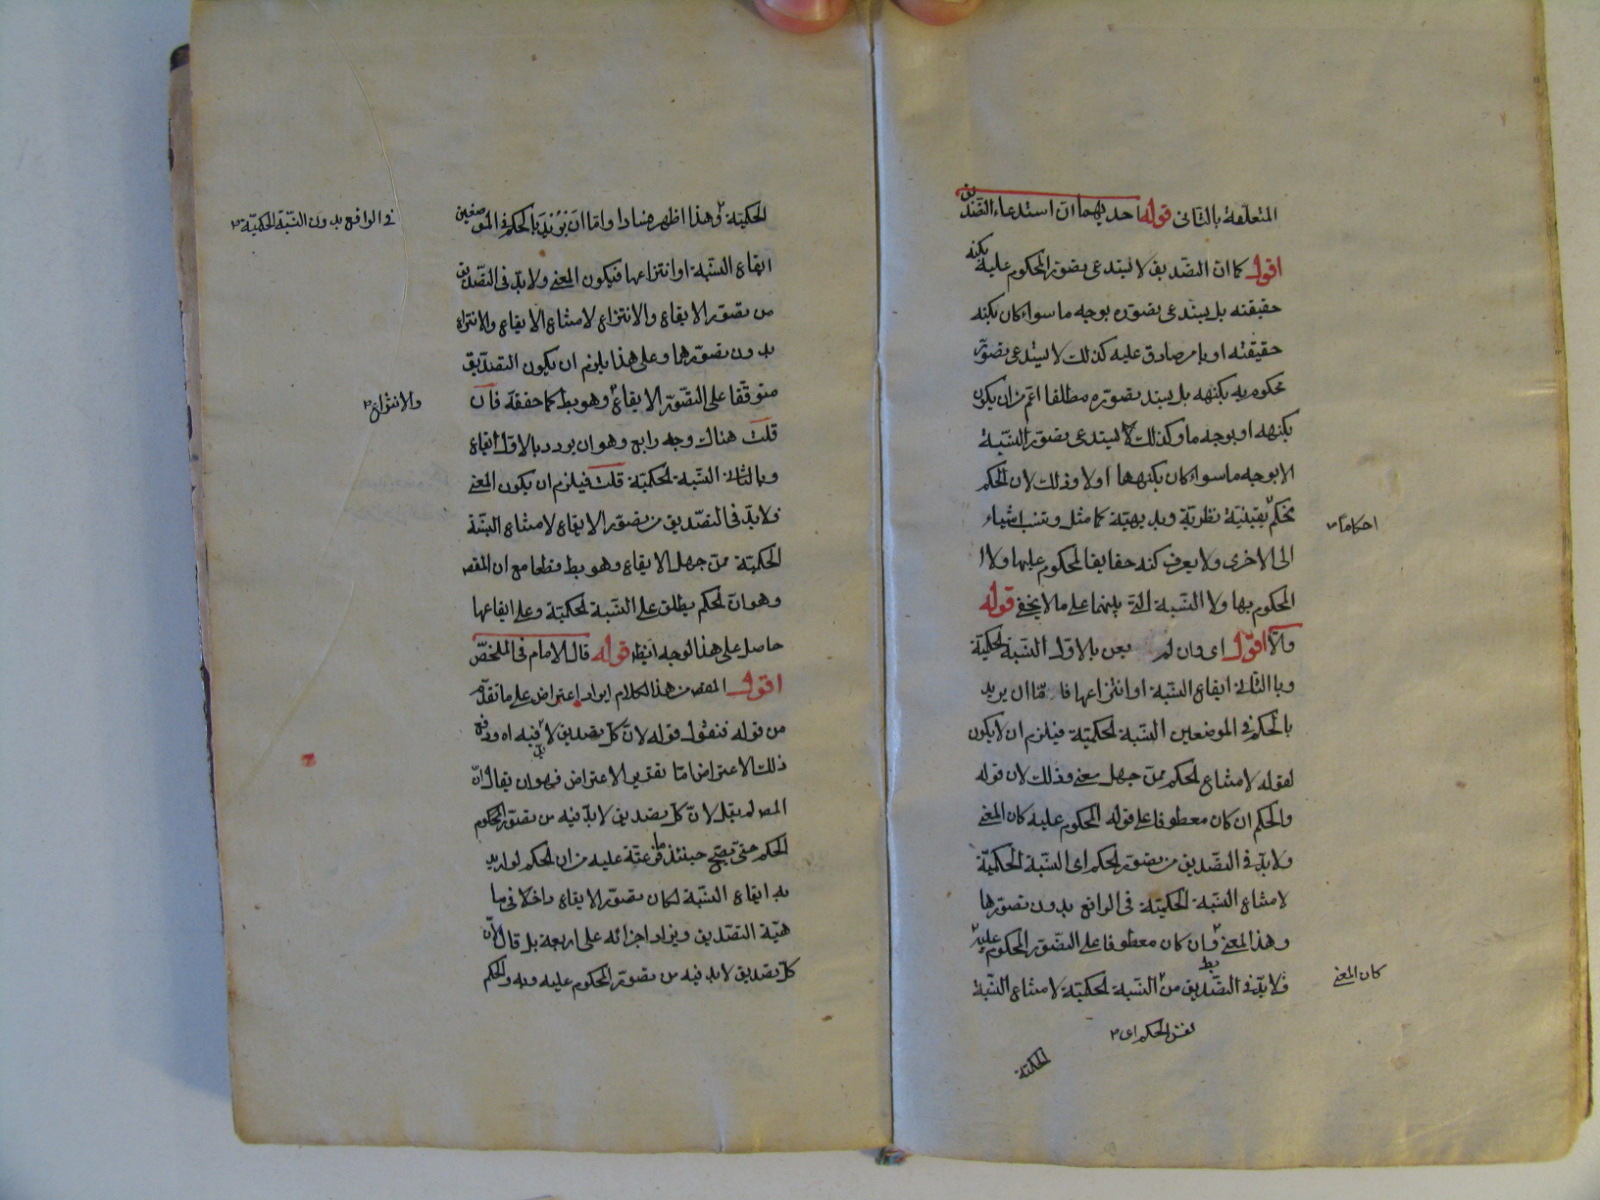 المتعلقة بالثانى قوله احديهما ان استدعاء التصديق
اقول كما ان التصديق لا يستدعى تصور المحكوم عليه بكنه
حقيقته بل يستدعى تصوره بوجه ما سواء كان بكنه
حقيقته او بامر صادق عليه كذلك لا يستدعى تصور
محكوم به بكنهه بل يستد تصوره مطلقا اعم من ان يكون
بكنهه او بوجه ما وكذلك لا يستدعى تصور النسبة
الا بوجه ما سواء كان بكنهها او لا وذلك لان الحكم
نحكم يقينية نظرية وبديهية كما مثل وننسب اشياء
احكاما
الى الاخرى ولا يعرف كنه حقايق المحكوم عليها ولا
المحكوم بها ولا النسبة التى بينهما على ما لا يخفى قوله
والا اقول اى وان لم يعن بالاول النسبة الحكمية
وبالثانى ايقاع النسبة او انتزاعها فاما ان يريد
بالحكم فى الموضعين النسبة الحكمية فيلزم ان لا يكون
لقوله لامتناع الحكم ممن جهل معنى وذلك لان قوله
والحكم ان كان معطوفا على قوله المحكوم عليه كان المعنى
ولا بد فى التصديق من تصور الحكم اى النسبة الحكمية
لامتناع النسبة الحكمية فى الواقع بدون تصورها
وهذا المعنى وان كان معطوفا على التصور المحكوم عليه
كان المعنى
فلا بد فى التصديق من النسبة الحكمية لامتناع النسبة
نفس الحكم اى
الحكمية
الحكمية وهذا اظهر فسادا واما ان يريد بالحكم فى الموضعين
فى الواقع بدون النسبة الحكمية
ايقاع النسبة او انتزاعها فيكون المعنى ولا بد فى التصديق
من تصور الايقاع والانتزاع لامتناع الايقاع والانتزاع
بدون تصورهما وعلى هذا يلزم ان يكون التصديق
متوقفا على التصور الايقاع وهو بط كما حققه فان
والانتزاع
قلت هناك وجه رابع وهو ان يورد بالاول ايقاع
وبالثانى النسبة الحكمية قلت فيلزم ان يكون المعنى
ولا بد فى التصديق من تصور الايقاع لامتناع النسبة
الحكمية ممن جهل الايقاع وهو بط قطعا مع ان المقص
وهو ان الحكم يطلق على النسبة الحكمية وعلى ايقاعها
حاصل على هذا الوجه ايضا قوله قال الامام فى الملخص
اقول المقص من هذا الكلام ايراد اعتراض على ما تقدم
من قوله فنقول قوله لان كل تصديق لا بد فيه اه ودفع
ذلك الاعتراض اما تقرير الاعتراض فهو ان يقال ان
المص لم يقل لان كل تصديق لا بد فيه من تصور المحكوم
الحكم حتى يصح حينئذ عليه من ان الحكم لو اريد
به ايقاع النسبة لكان تصور الايقاع داخلا فى ما
هية التصديق ويزاد اجزائه على اربعة بل قال لان
كل تصديق لا بد فيه من تصور المحكوم عليه وبه والحكم